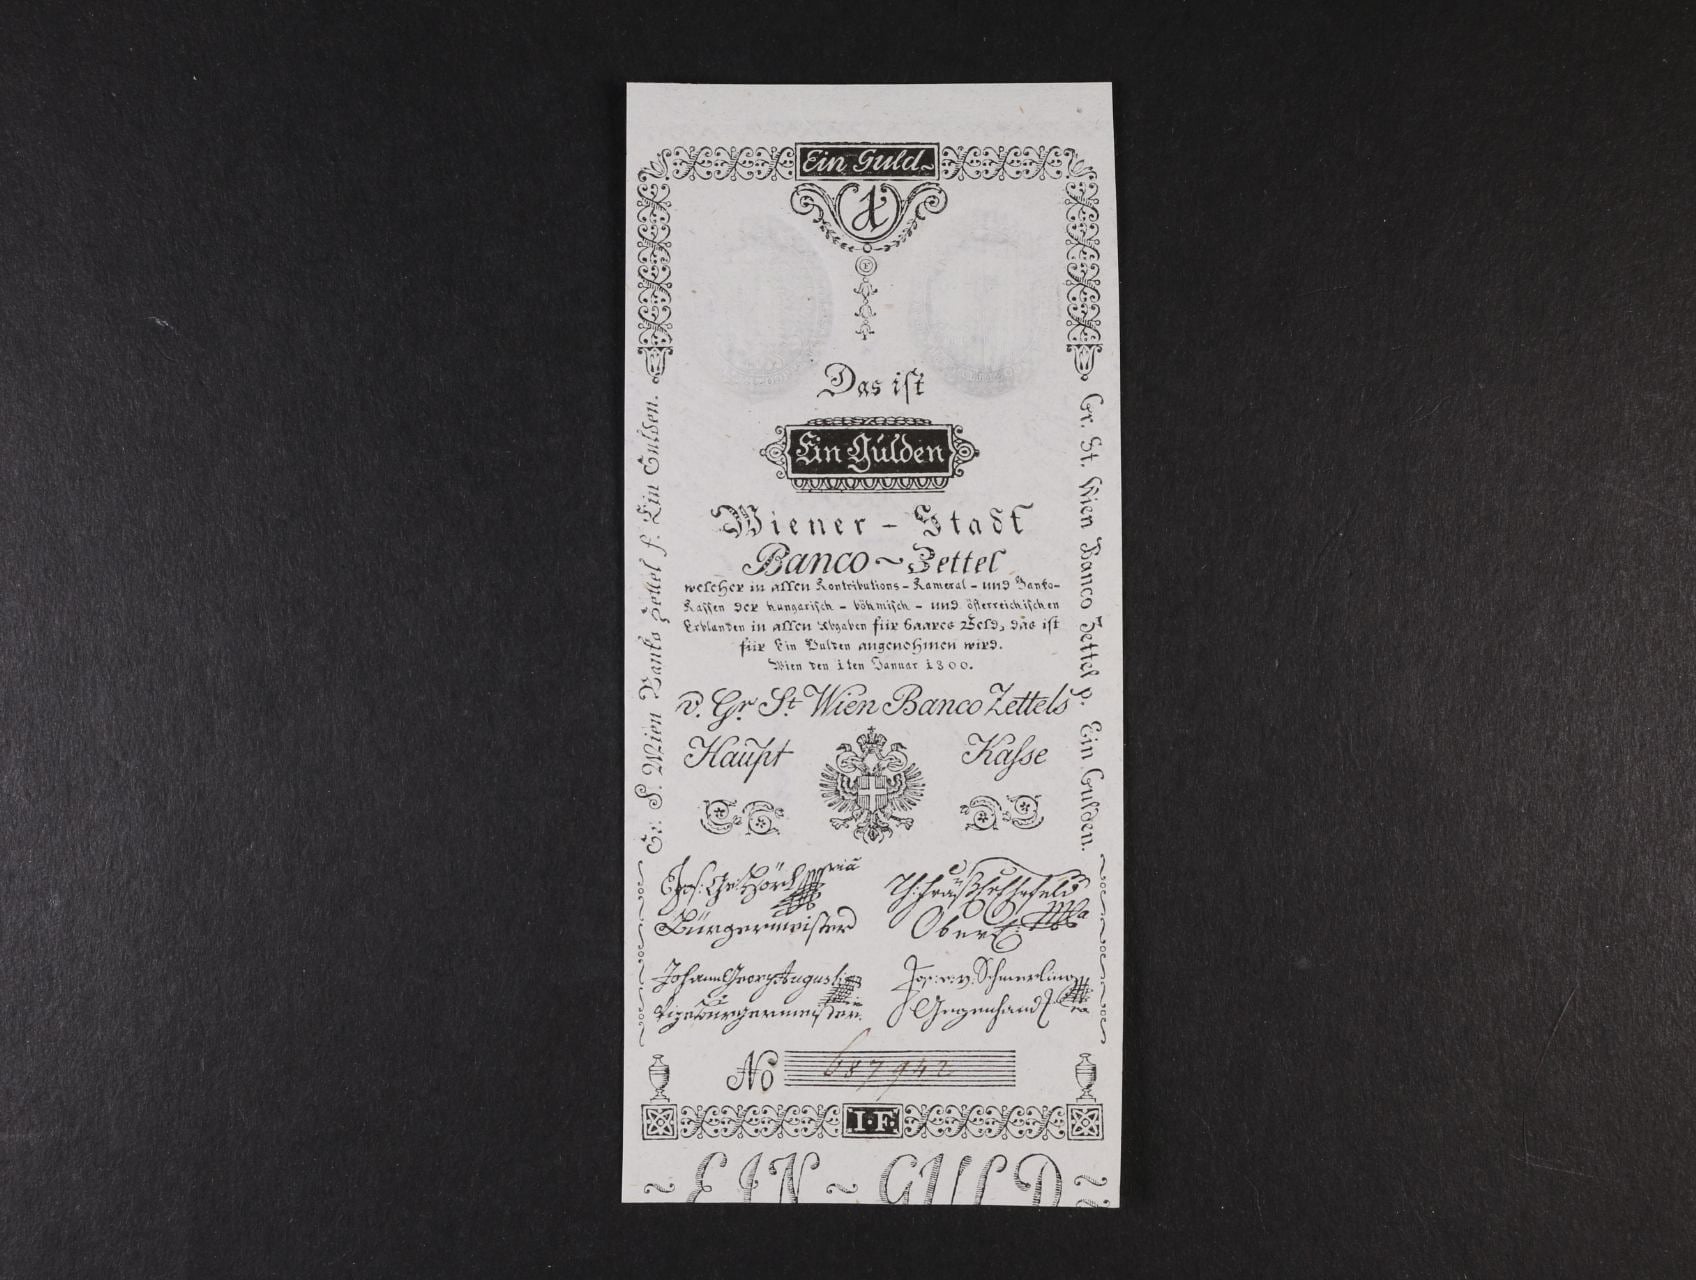 Ein Guld~
1
Das ist
Ein Gulden
Wiener - Stadt
Banco ~ Zettel
welcher in allen Kontributions - Kameral - und Banko-
Kassen der hungarisch - böhmisch - und österreichischen
Erblanden in allen Abgaben für baares Geld, das ist
für Ein Gulden angenohmen wird.
Wien den 1ten Januar 1800.
v. Gr. St. Wien Banco Zettels
Haupt Kasse
Gr. S. Wien Banko Zettel f. Ein Gulden.
Gr. St. Wien Banco Zettel p. Ein Gulden.
Bürgermeister
Johann Georg Augusti
Vizebürgermeister
Jos. v. Schmerling
Gegenhand
No 687942
I·F.
~ EIN ~ GULD ~